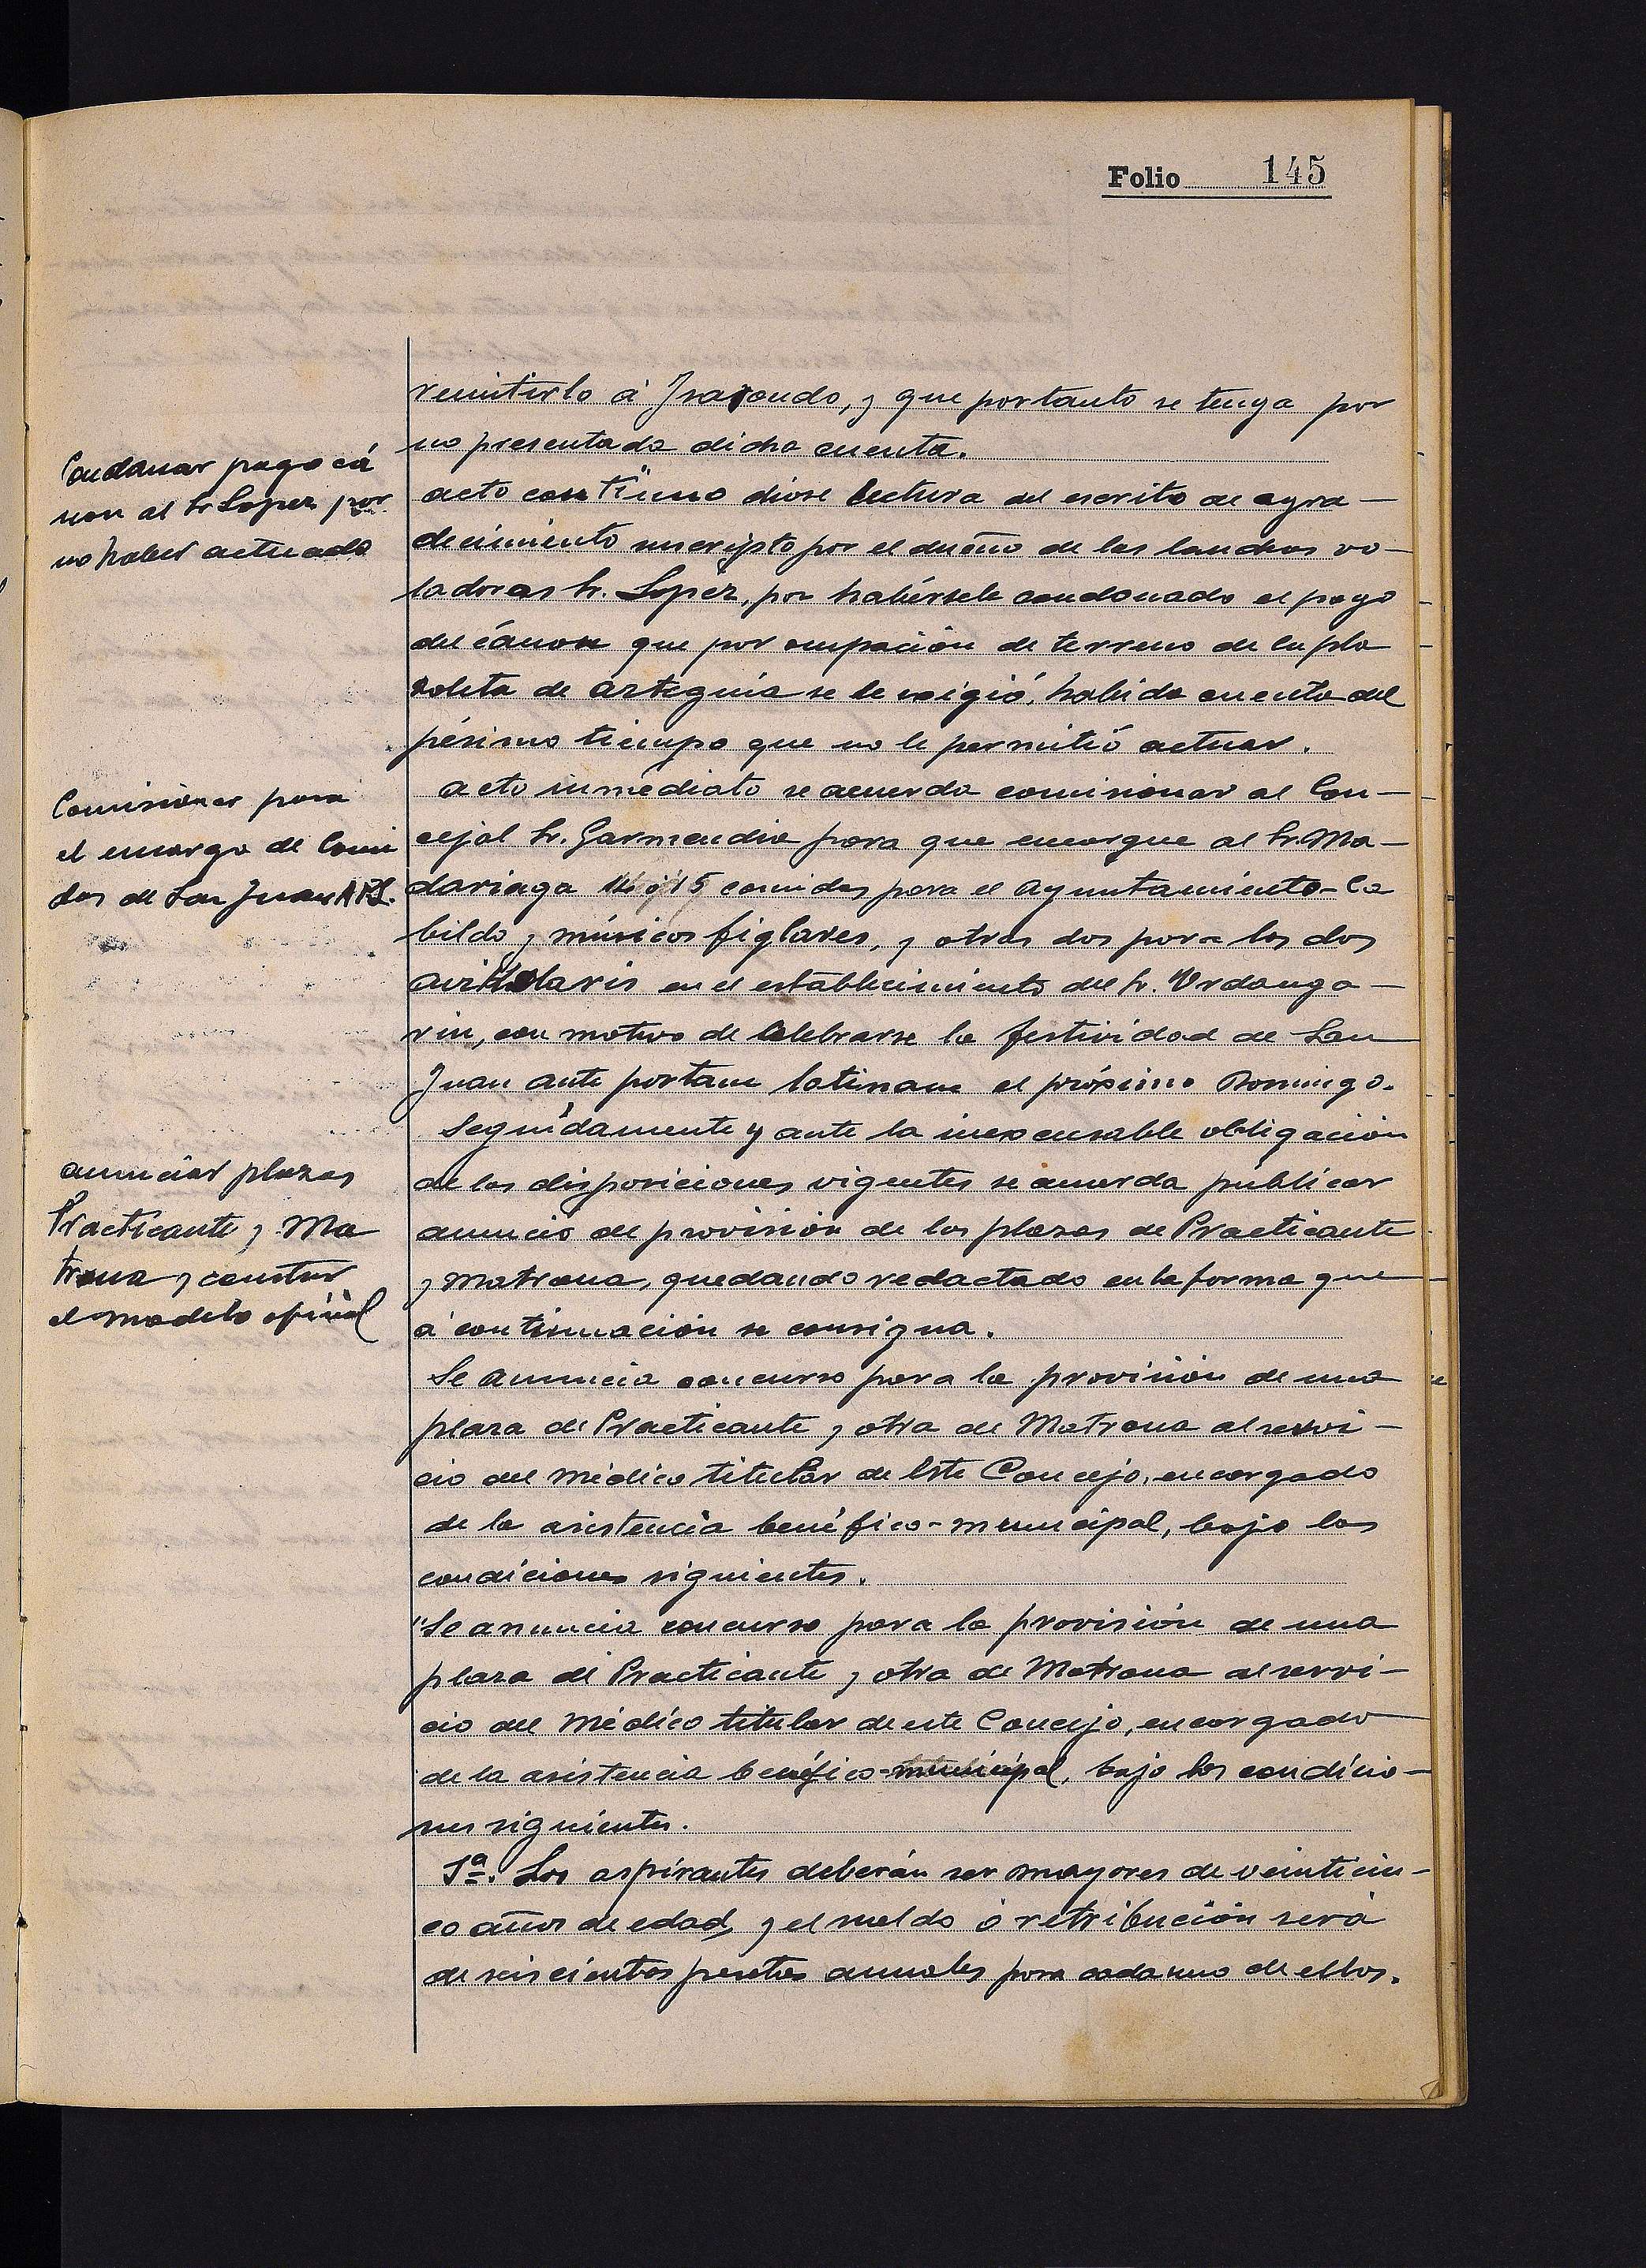 Folio 145
remitirlo á Irazondo, y que portanto se tenga por
no presentada dicha cuenta.
Condonar pago cá
non al Sr Lopez por
no haber actuado
acto contínuo diose lectura del escrito de agra-
decimiento suscripto por el dueño de las lanchas vo-
ladoras Sr. Lopéz, por habérsele condonado el pago
del cánon que por ocupación de terreno de la pla
zoleta de Arteguía se le exigió, habida cuenta del
pésimo tiempo que no le permitió actuar.
Comisionar para
el encargo de Comi
das de San Juan A P L.
acto inmediato se acuerda comisionar al Con-
cejal Sr. Garmendia para que encargue al Sr. Ma-
dariaga 14 ó 15 comidas para el Ayuntamiento-Ca
bildo y músicos figlares, y otras dos para los dos
en el establecimiento del Sr. Urdanga-
rin, con motivo de Celebrarse la festividad de San
Juan ante portam latinam el próximo Domingo.
Seguidamente y ante la inexcusable obligación
de las disposiciones vigentes se acuerda publicar
anuncio de provisión de las plazas de Practicante
y Matrona, quedando redactado en la forma que
á continuación se consigna.
anunciar plazas
Practicante y Ma
trona y
el modelo oficial
Se anuncia concurso para la provisión de una
plaza de Practicante y otra de Matrona al servi-
cio del Médico titular de Este Concejo, encargado
de la asistencia benéfico-municipal, bajo las
condiciones siguientes.
"Se anuncia concurso para la provisión de una
plaza de Practicante y otra de Matrona al servi-
cio del Médico titular de este Concejo, encargado
de la asistencia benéfico-municipal, bajo las condicio-
nes siguientes.
1ª. Los aspirantes deberán ser mayores de veinticin-
co años de edad, y el sueldo ó retribución será
de seiscientas pesetas anuales para cada uno de ellos.